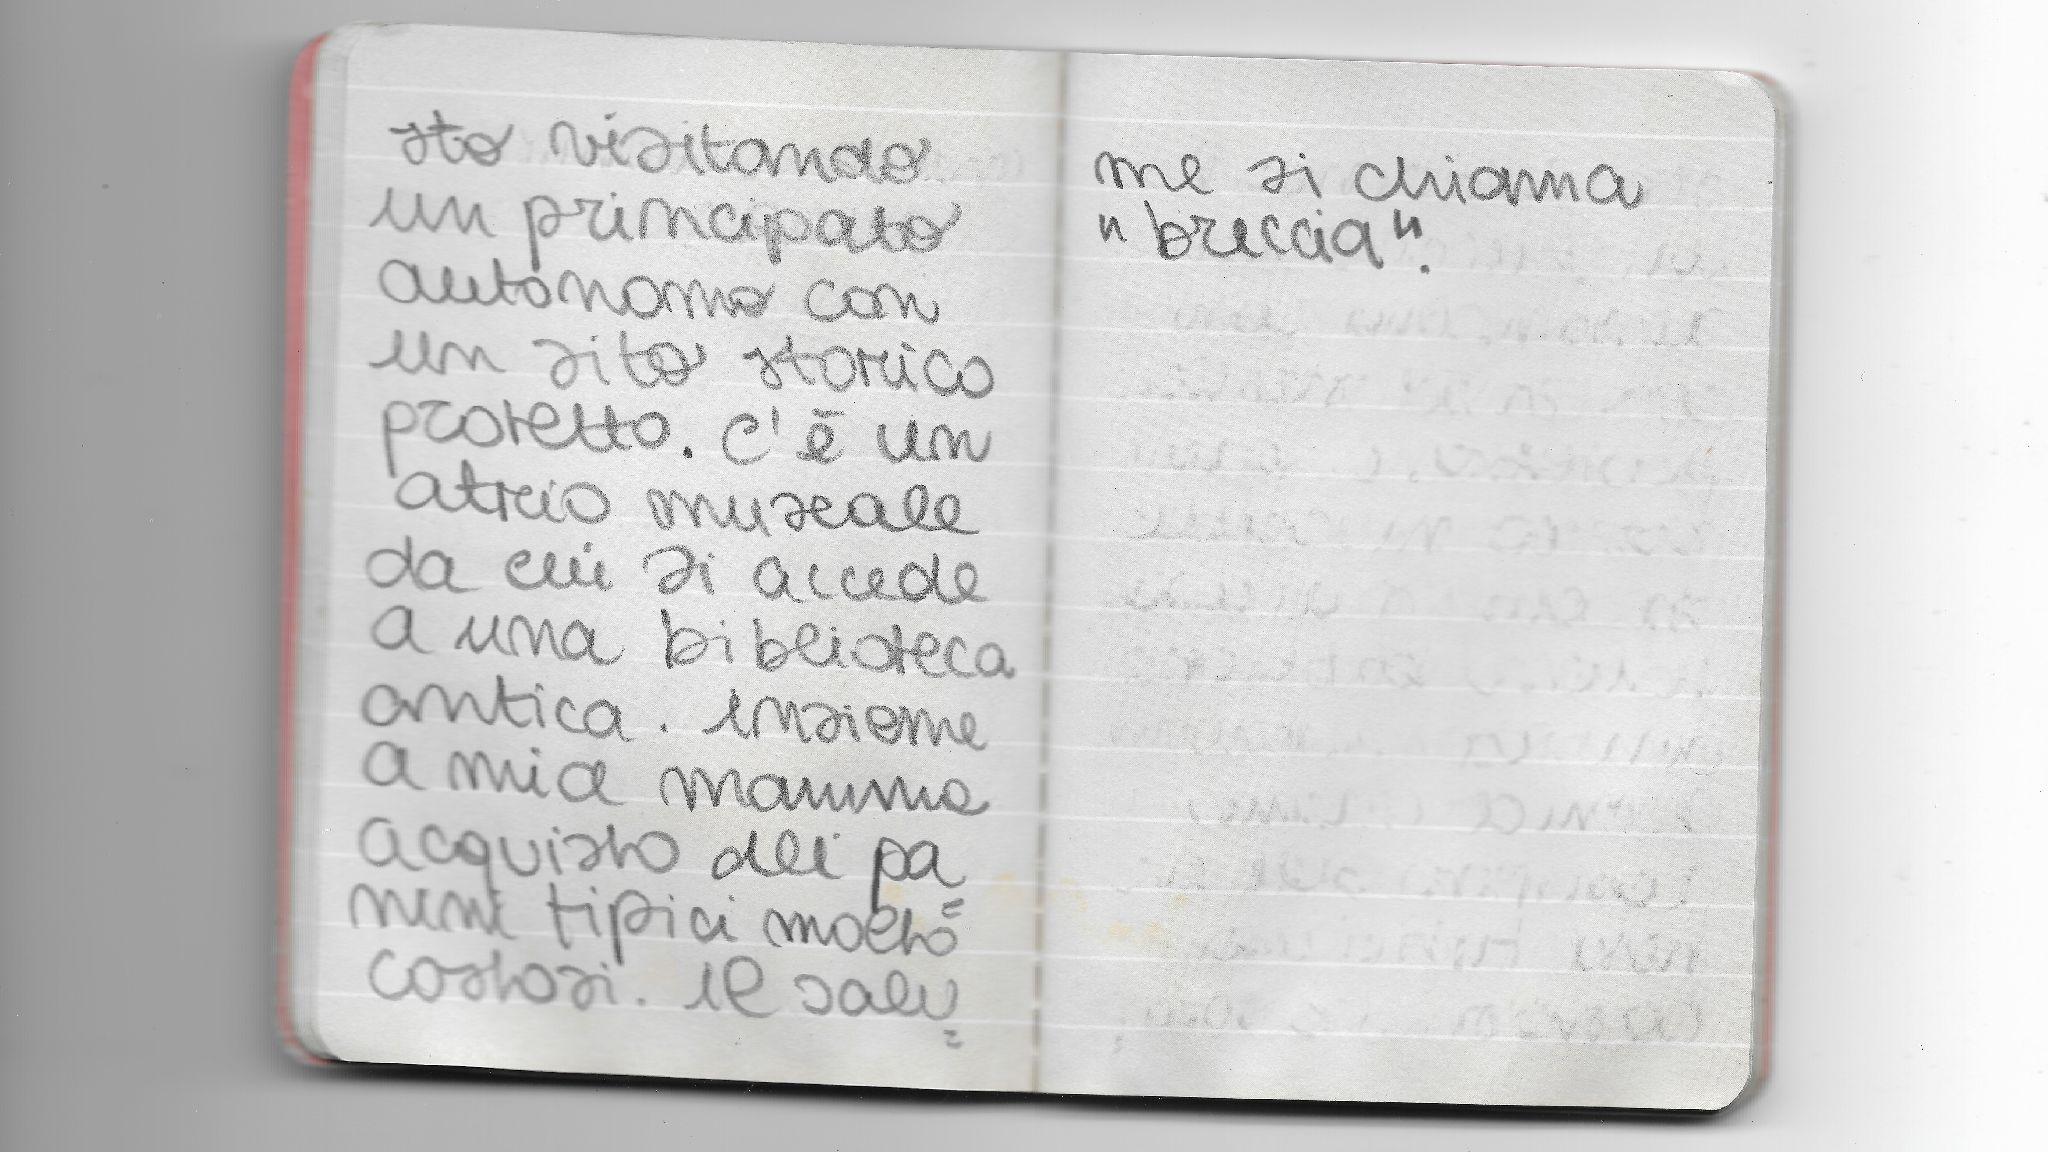 sto visitando
un principato
autonomo con
un sito storico
protetto. C'è un
atrio museale
da cui si accede
a una biblioteca
antica. Insieme
a mia mamma
acquisto dei pa
=
nini tipici molto
costosi. Il salu
=
me si chiama
"breccia".